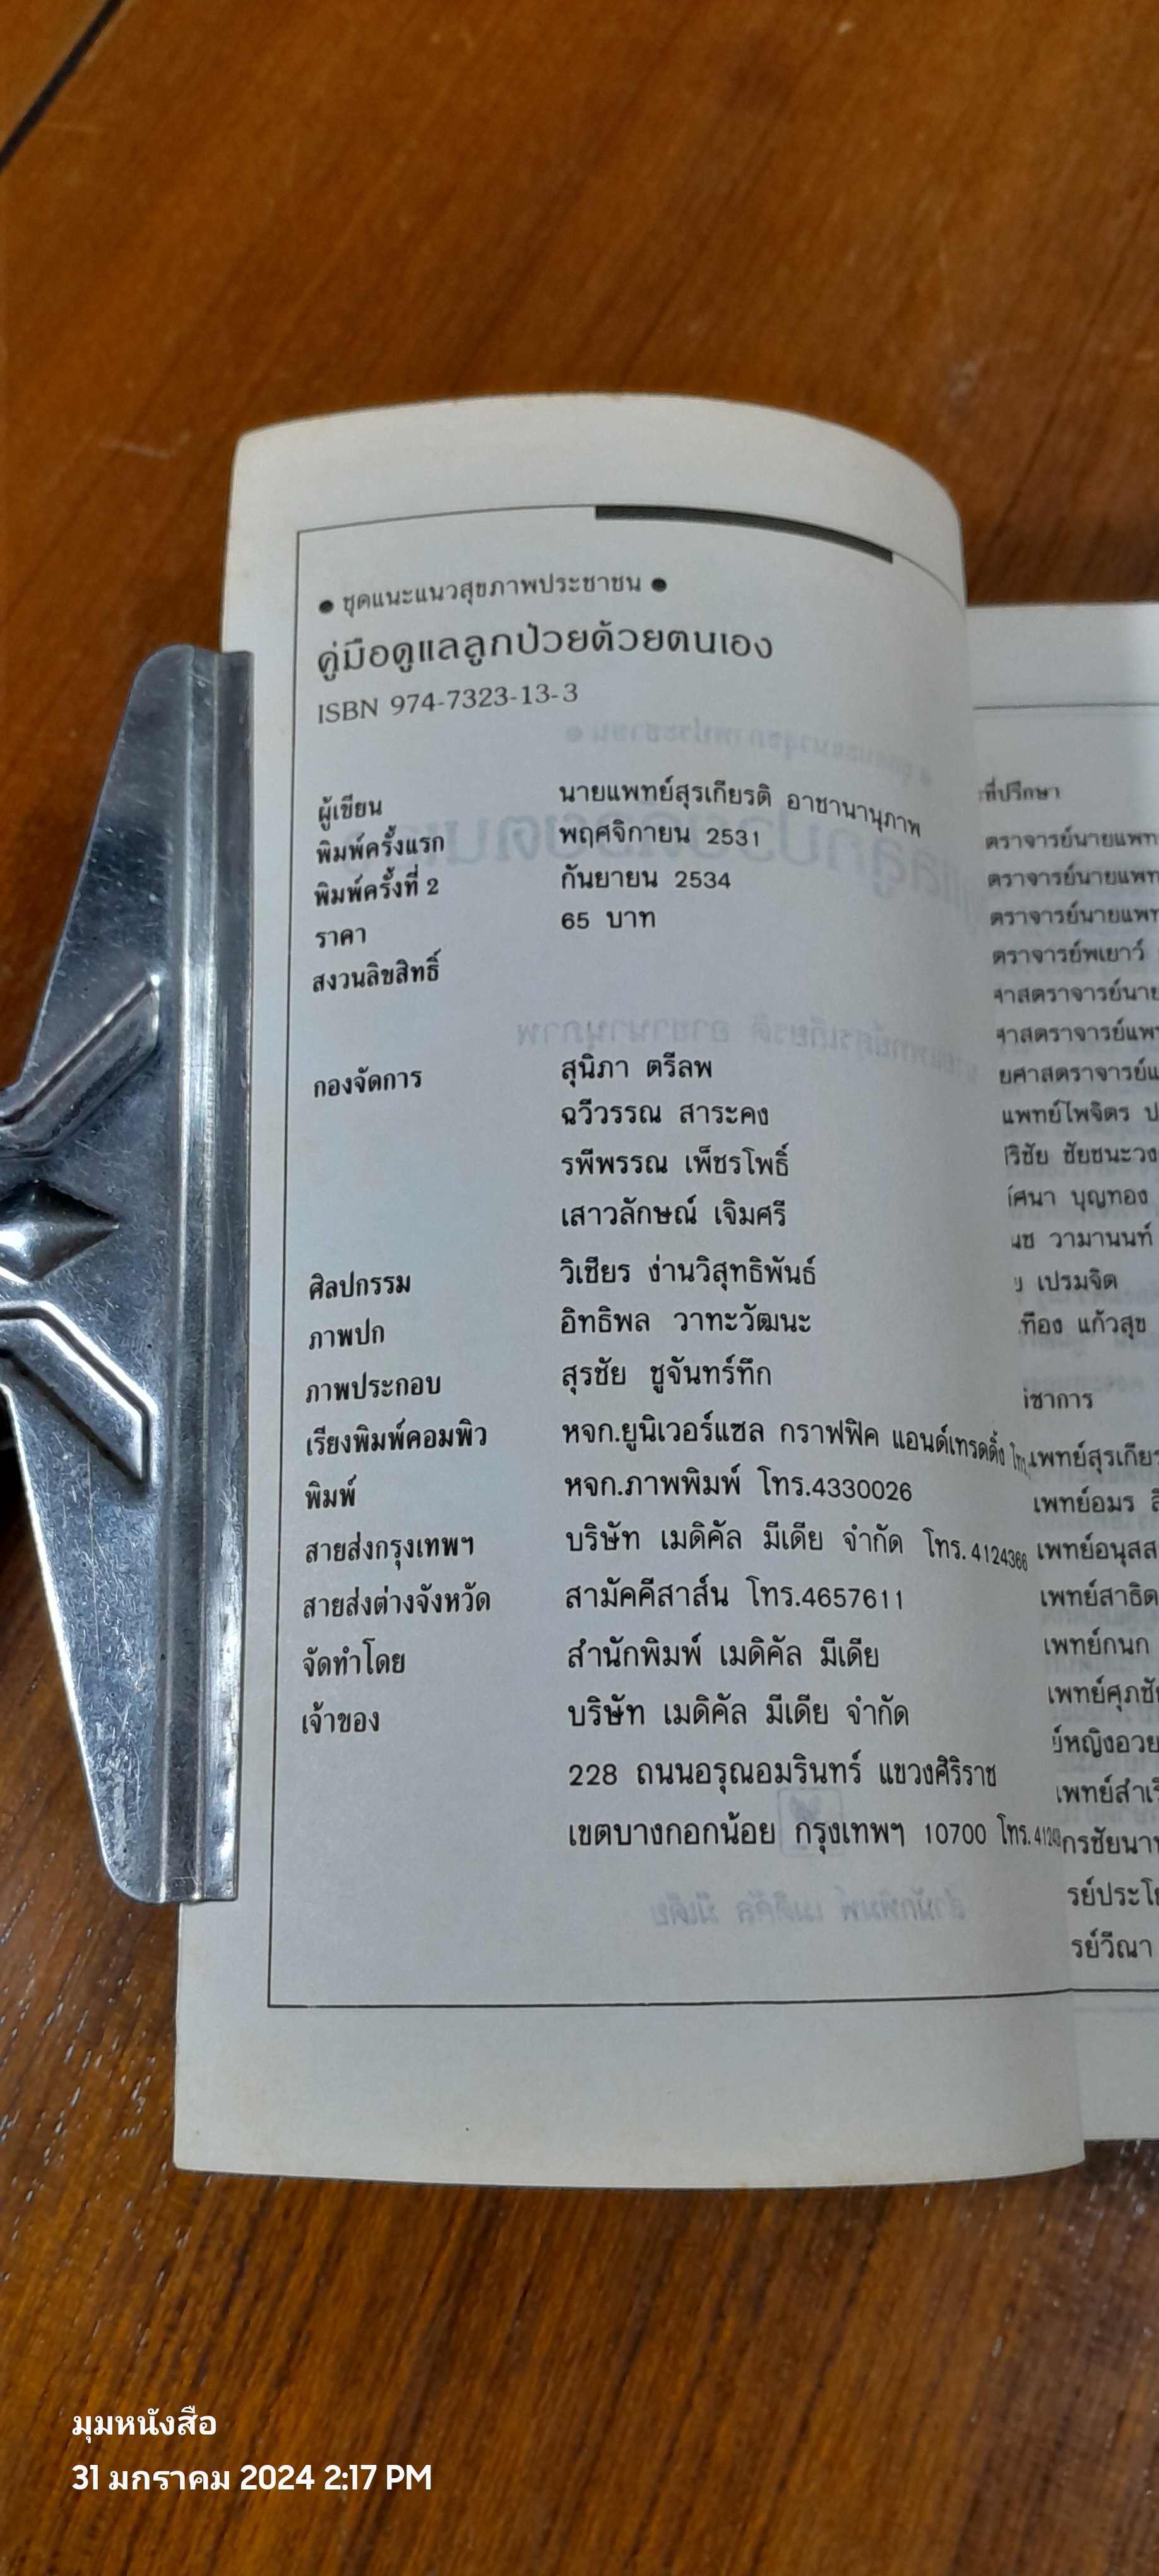 ● ชุดแนะแนวสุขภาพประชาชน ●
คู่มือดูแลลูกป่วยด้วยตนเอง
ISBN 974-7323-13-3
ผู้เขียน นายแพทย์สุรเกียรติ อาชานานุภาพ
พิมพ์ครั้งแรก พฤศจิกายน 2531
พิมพ์ครั้งที่ 2 กันยายน 2534
ราคา 65 บาท
สงวนลิขสิทธิ์
กองจัดการ สุนิภา ตรีลพ
ฉวีวรรณ สาระคง
รพีพรรณ เพ็ชรโพธิ์
เสาวลักษณ์ เจิมศรี
ศิลปกรรม วิเชียร ง่านวิสุทธิพันธ์
ภาพปก อิทธิพล วาทะวัฒนะ
ภาพประกอบ สุรชัย ชูจันทร์ทึก
เรียงพิมพ์คอมพิว หจก.ยูนิเวอร์แซล กราฟฟิค แอนด์เทรดดิ้ง
พิมพ์ หจก.ภาพพิมพ์ โทร.4330026
สายส่งกรุงเทพฯ บริษัท เมดิคัล มีเดีย จำกัด โทร. 4124366
สายส่งต่างจังหวัด สามัคคีสาส์น โทร.4657611
จัดทำโดย สำนักพิมพ์ เมดิคัล มีเดีย
เจ้าของ บริษัท เมดิคัล มีเดีย จำกัด
228 ถนนอรุณอมรินทร์ แขวงศิริราช
เขตบางกอกน้อย กรุงเทพฯ 10700 โทร.
ที่ปรึกษา
ตราจารย์นายแพท
ตราจารย์นายแพท
ตราจารย์นายแพท
ตราจารย์พเยาว์
าสตราจารย์นาย
าสตราจารย์แพท
ยศาสตราจารย์แ
แพทย์ไพจิตร ป
ริชัย ชัยชนะวง
ัศนา บุญทอง
นช วามานนท์
ย เปรมจิต
ทือง แก้วสุข
ิชาการ
เพทย์สุรเกียร
เพทย์อมร ลี
เพทย์อนุสส
เพทย์สาธิต
เพทย์กนก
เพทย์ศุภชั
ย์หญิงอวย
เพทย์สำเริ
กรชัยนาท
รย์ประโย
รย์วีณา
มุมหนังสือ
31 มกราคม 2024 2:17 PM